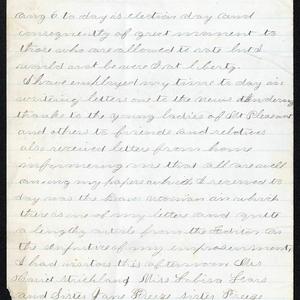 Aug 6 to day is election day and
consequently of great moment to
those who are allowed to vote but I
would not be were I at liberty.
I have employed my time to day in
writing letters one to the news tendering
thanks to the young ladies of Mt Pleasant
and others to friends and relatives
also received letters from home
informing me that all are well
among my papers which I received to
day was the in which
there is one of my letters and quite
a lengthy article from the Editor on
the of my imprisonment
I had visitors this afternoon Mrs
David Strickland Miss Sears
and Sister Jane Preece sister Preece